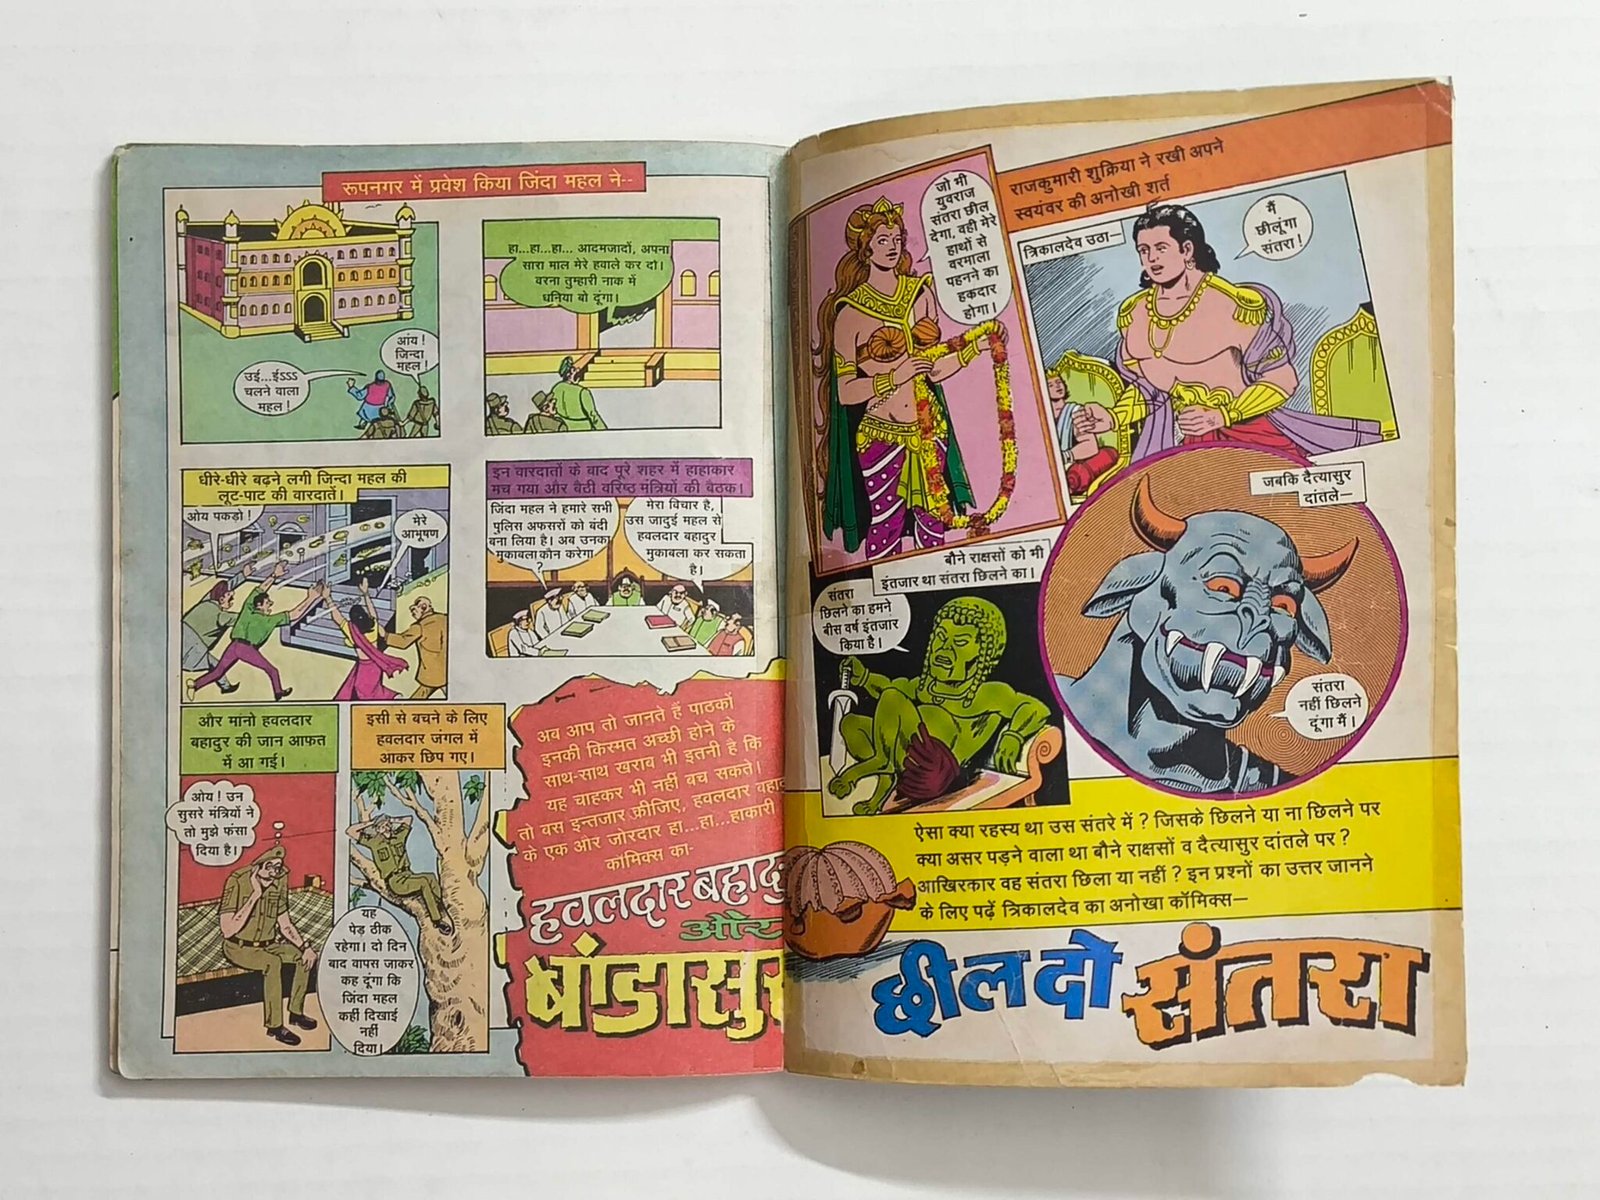 रूपनगर में प्रवेश किया जिंदा महल ने--
उई...ईSSS
चलने वाला
महल !
आंय !
जिन्दा
महल !
हा...हा...हा... आदमजादों, अपना
सारा माल मेरे हवाले कर दो।
वरना तुम्हारी नाक में
धनिया बो दूंगा।
धीरे-धीरे बढ़ने लगी जिन्दा महल की
लूट-पाट की वारदातें।
ओय पकड़ो !
मेरे
आभूषण
इन वारदातों के बाद पूरे शहर में हाहाकार
मच गया और बैठी वरिष्ठ मंत्रियों की बैठक।
जिंदा महल ने हमारे सभी
पुलिस अफसरों को बंदी
बना लिया है। अब उनका
मुकाबला कौन करेगा
?
मेरा विचार है,
उस जादुई महल से
हवलदार बहादुर
मुकाबला कर सकता
है।
और मानो हवलदार
बहादुर की जान आफत
में आ गई।
ओय ! उन
सुसरे मंत्रियों ने
तो मुझे फंसा
दिया है।
इसी से बचने के लिए
हवलदार जंगल में
आकर छिप गए।
यह
पेड़ ठीक
रहेगा। दो दिन
बाद वापस जाकर
कह दूंगा कि
जिंदा महल
कहीं दिखाई
नहीं
दिया।
अब आप तो जानते हैं पाठकों
इनकी किस्मत अच्छी होने के
साथ-साथ खराब भी इतनी है कि
यह चाहकर भी नहीं बच सकते।
तो बस इन्तजार कीजिए, हवलदार
के एक और जोरदार हा...हा...हाकारी
कॉमिक्स का-
हवलदार
और
राजकुमारी शुक्रिया ने रखी अपने
स्वयंवर की अनोखी शर्त
जो भी
युवराज
संतरा छील
देगा, वही मेरे
हाथों से
वरमाला
पहनने का
हकदार
होगा।
त्रिकालदेव उठा—
मैं
छीलूंगा
संतरा !
बौने राक्षसों को भी
इंतजार था संतरा छिलने का।
संतरा
छिलने का हमने
बीस वर्ष इंतजार
किया है।
जबकि दैत्यासुर
दांतले—
संतरा
नहीं छिलने
दूंगा मैं।
ऐसा क्या रहस्य था उस संतरे में ? जिसके छिलने या ना छिलने पर
क्या असर पड़ने वाला था बौने राक्षसों व दैत्यासुर दांतले पर ?
आखिरकार वह संतरा छिला या नहीं ? इन प्रश्नों का उत्तर जानने
के लिए पढ़ें त्रिकालदेव का अनोखा कॉमिक्स—
छील दो संतरा